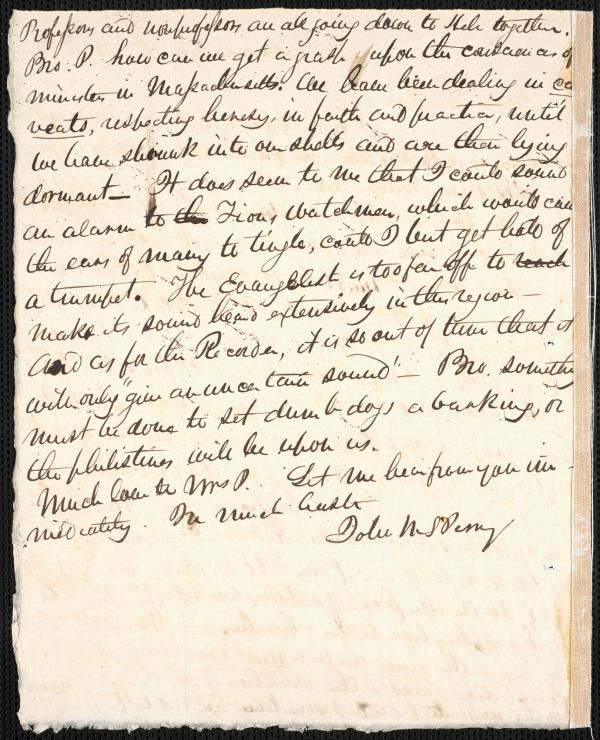 Professors and nonprofessors are all going down to Hell together.
Bro. P. how can we get a grasp upon the consciences of
ministers in Massachusetts. We have been dealing in ca
veats, respecting heresy, in faith and practice, until
we have shrunk into our shells and are there lying
dormant — It does seem to me that I could sound
an alarm to the Zions watchmen, which would cause
the ears of many to tingle, could I but get hold of
a trumpet. The Evangelist is too far off to reach
make its sound heard extensively in this region —
And as for the Recorder, it is so out of tune that it
will only "give an uncertain sound" — Bro. something
must be done to set dumb dogs a barking, or
the philistines will be upon us.
Much love to Mrs P. Let me hear from you im-
mediately. In much haste
John M S Perry